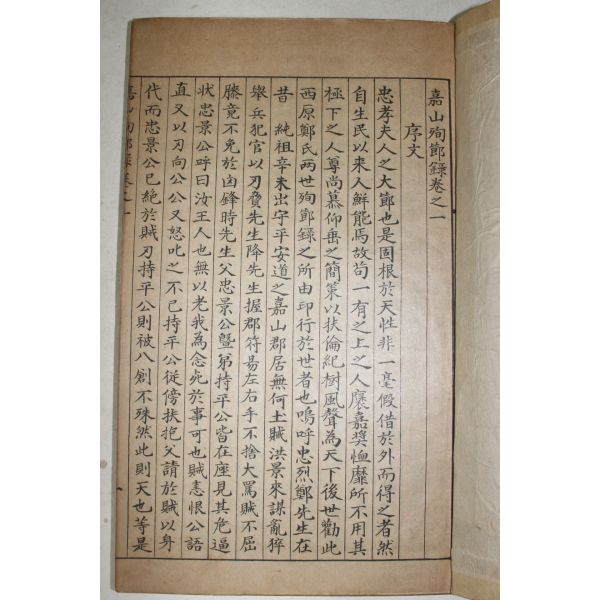 嘉山殉節錄卷之一
序文
忠孝夫人之大節也是固根於天性非一毫假借於外而得之者然
自生民以來人鮮能焉故苟一有之上之人褒嘉奬恤靡所不用其
極下之人尊尚慕仰垂之簡策以扶倫紀樹風聲為天下後世勸此
西原鄭氏两世殉節錄之所由印行於世者也嗚呼忠烈鄭先生在
昔 純祖辛未出宇平安道之嘉山郡居無何土賊洪景來謀亂猝
舉兵犯官以刃脅先生降先生握郡符易左右手不捨大罵賊不屈
膝竟不免於凶鋒時先生父忠景公曁弟持平公皆在座見其危逼
狀忠景公呼曰汝王人也無以老我為念死於事可也賊恚恨公語
直又以刃向公公又怒叱之不已持平公從傍扶抱父請於賊以身
代而忠景公已絶於賊刃持平公則被八創不殊然此則天也等是
嘉山殉節錄卷之一